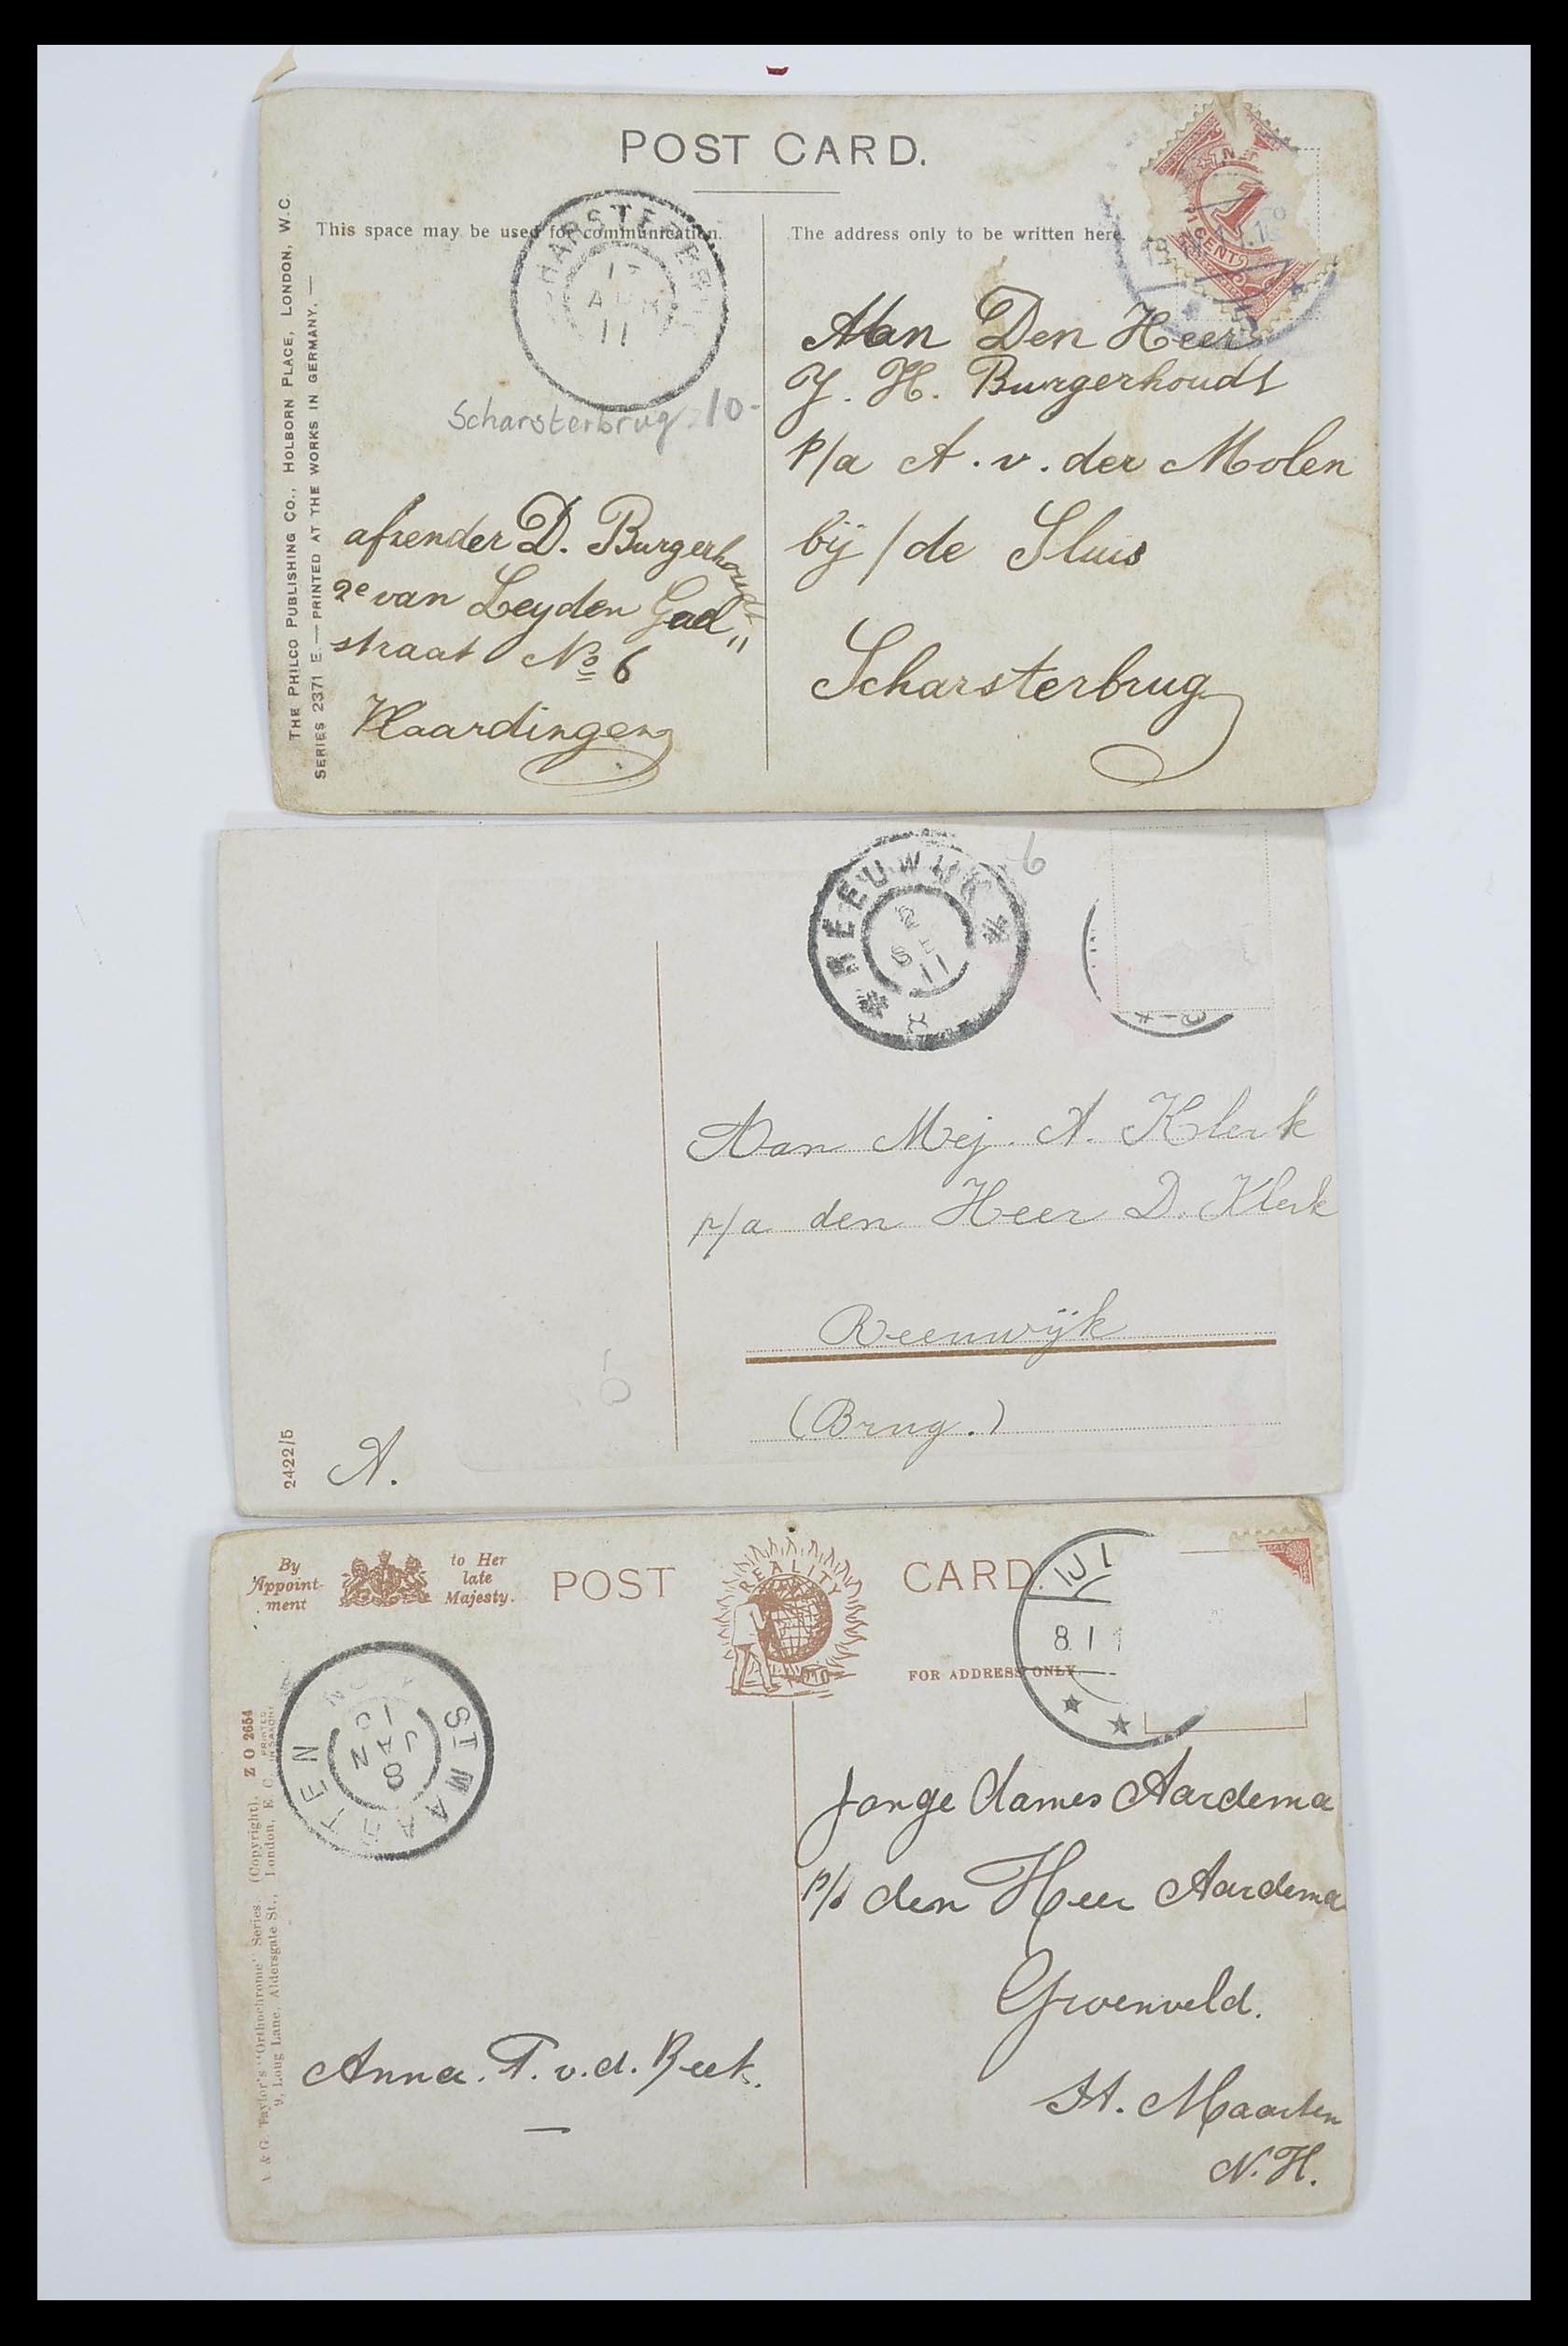 POST CARD.
This space may be used for communication.
The address only to be written here.
THE PHILCO PUBLISHING CO., HOLBORN PLACE, LONDON, W.C.
SERIES 2371 E. — PRINTED AT THE WORKS IN GERMANY. —
APR
11
1
CENT
Scharsterbrug 10-
afzender D. Burgerhoudt
2e van Leyden Gael"
straat No 6
Vlaardingen
Aan Den Heer
J. H. Burgerhoudt
p/a A. v. der Molen
bij / de Sluis
Scharsterbrug
REEUWIJK
2
SE
11
8
6
Aan Mej. A. Klerk
p/a den Heer D. Klerk
Reeuwijk
(Brug.)
6
2422/5
A.
By Appoint-
ment
to Her
late
Majesty.
POST CARD.
REALITY
FOR ADDRESS ONLY.
8 1 1
ST MAARTEN
8
JAN
10
Z O 2654
PRINTED
IN SAXONY
A. & G. Taylor's "Orthochrome" Series. (Copyright).
9, Long Lane, Aldersgate St., London, E. C.
Jonge dames Aardema
p/a den Heer Aardema
Groenveld.
St. Maarten
N.H.
Anna. T. v. d. Beek.